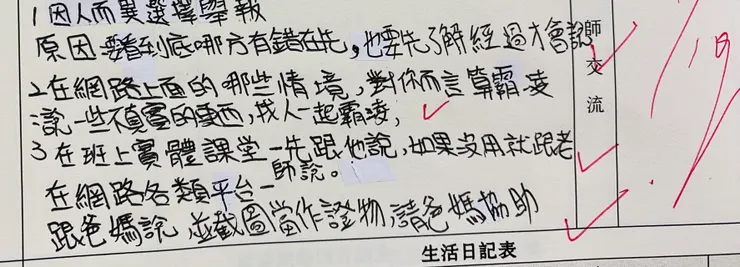 1因人而異選擇舉報
原因:要看到底哪方有錯在先,也要先了解經過才會說
2.在網路上面的哪些情境,對你而言算霸凌
說一些不真實的東西,找人一起霸凌,
3在班上實體課堂-先跟他說,如果沒用就跟老
師說。
在網路各類平台-
跟爸媽說,並截圖當作證物,請爸媽協助
師交流
生活日記表